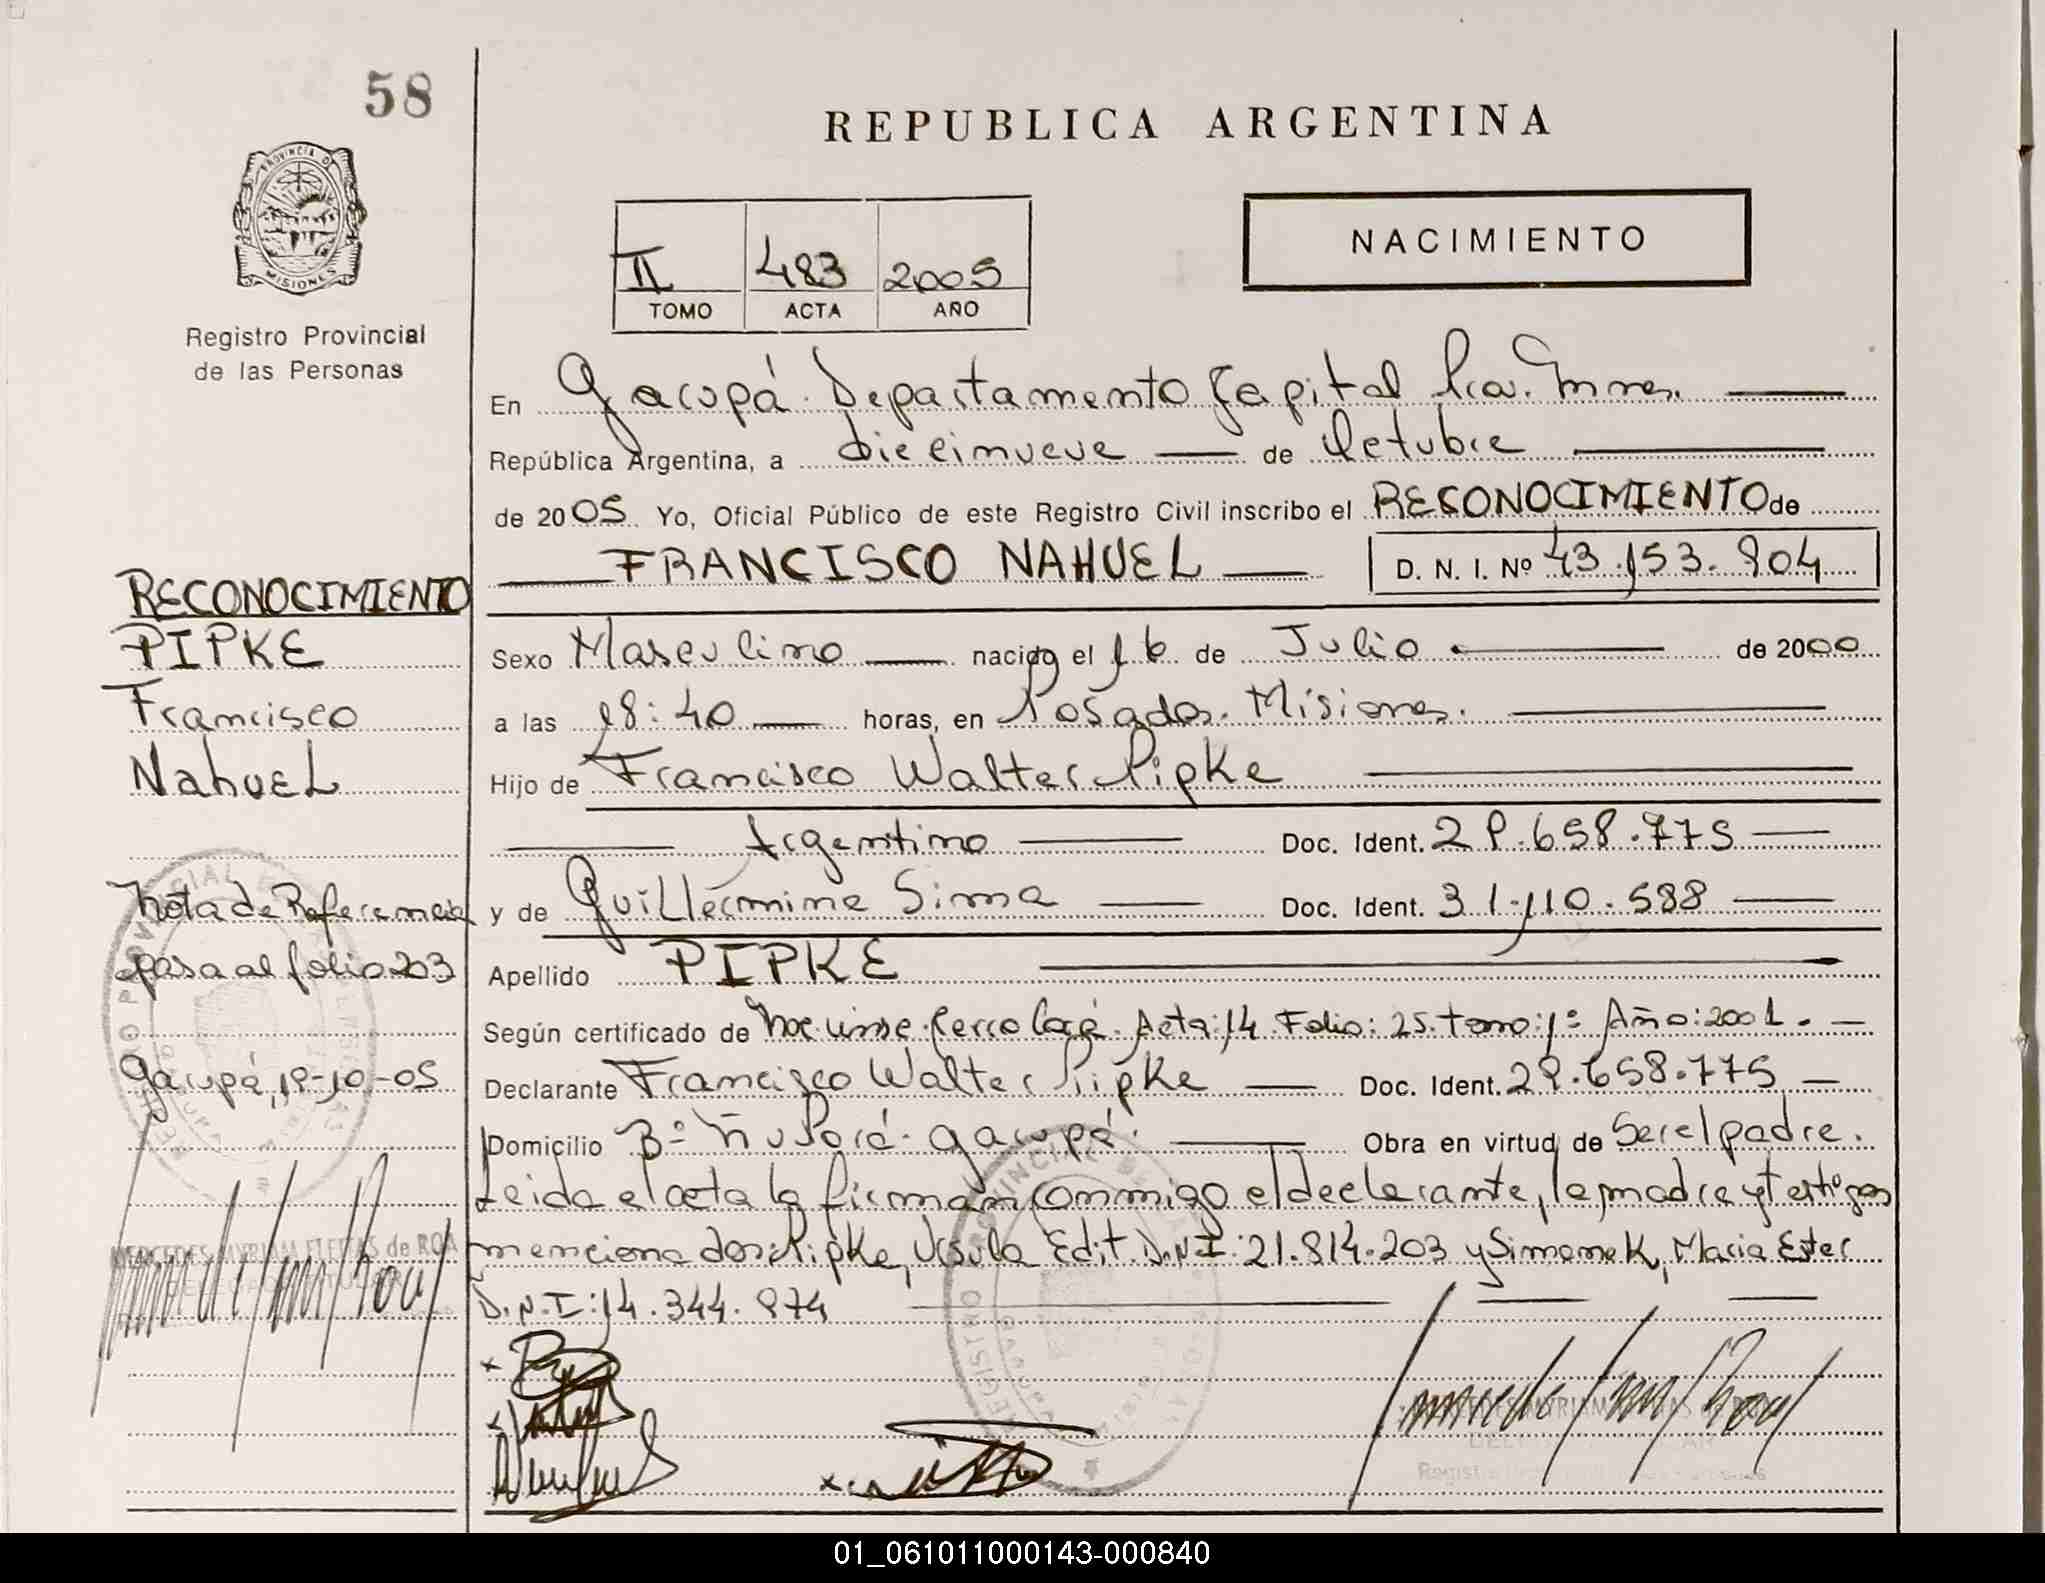 58
REPUBLICA ARGENTINA
PROVINCIA D MISIONES
NACIMIENTO
II 483 2005
TOMO ACTA AÑO
Registro Provincial
de las Personas
En Garupá. Departamento Capital Pcia. Mnes.
República Argentina, a diecinueve de Octubre
de 2005 Yo, Oficial Público de este Registro Civil inscribo el RECONOCIMIENTO de
FRANCISCO NAHUEL D. N. I. Nº 43.153.904
RECONOCIMIENTO
PIPKE
Francisco
Nahuel
Sexo Masculino nacido el 16 de Julio de 2000
a las 18:40 horas, en Posadas. Misiones.
Hijo de Francisco Walter Pipke
Argentino Doc. Ident. 29.658.775
y de Guillermina Sima Doc. Ident. 31.110.588
Apellido PIPKE
Nota de Referencia
pasa al folio 203
Garupá, 19-10-05
Según certificado de Acta: 14 Folio: 25. tomo: 1º Año: 2001.
Declarante Francisco Walter Pipke Doc. Ident. 29.658.775
Domicilio Bº Ñu Porá. Garupá. Obra en virtud de Ser el padre.
Leida el acta la firman conmigo el declarante, la madre y testigos
mencionados: Pipke, Ursula Edit. D.N.I: 21.814.203 y Simonek, Maria Ester
D.N.I: 14.344.974
MERCEDES MYRIAM FLEITAS de ROA
01_061011000143-000840